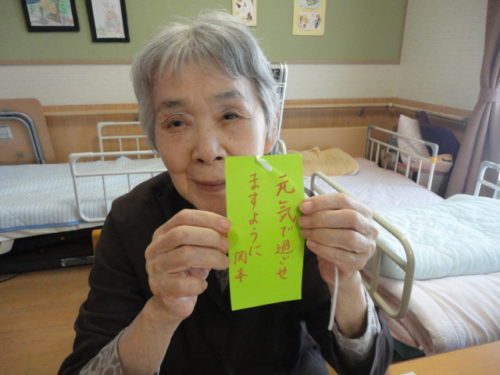 元気で過ごせ
ますように
岡本